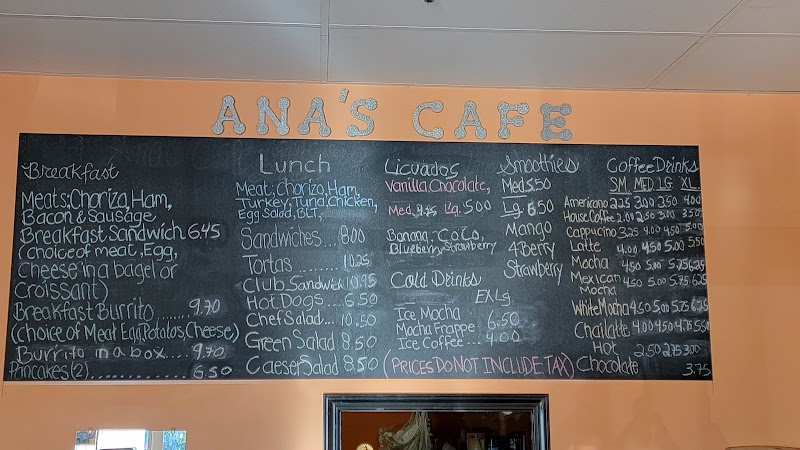 ANA'S CAFE
Breakfast
Meats: Chorizo, Ham,
Bacon & Sausage
Breakfast Sandwich 6.45
(choice of meat, Egg,
Cheese in a bagel or
Croissant)
Breakfast Burrito ....... 9.70
(Choice of Meat Egg, Potatos, Cheese)
Burrito in a box.... 9.70
Pancakes (2)................ 6.50
Lunch
Meat; Chorizo, Ham,
Turkey, Tuna, Chicken,
Egg Salad, BLT,
Sandwiches... 8.00
Tortas ....... 10.25
Club Sandwich 10.95
Hot Dogs... 6.50
Chef Salad... 10.50
Green Salad 8.50
Caeser Salad 8.50
Licuados
Vanilla, Chocolate,
Med. Lg. 5.00
Banana, CoCo,
Blueberry, Strawberry
Cold Drinks
EX Lg.
Ice Mocha
Mocha Frappe 6.50
Ice Coffee... 4.00
(PRICES DO NOT INCLUDE TAX)
Smoothies
Med 5.50
Lg. 6.50
Mango
4 Berry
Strawberry
Coffee Drinks
SM. MED. LG. XL.
Americano 2.25 3.00 3.50 4.00
House Coffee 2.00 2.50 3.00 3.50
Cappucino 3.25 4.00 4.50 5.00
Latte 4.00 4.50 5.00 5.50
Mocha 4.50 5.00 5.75 6.25
Mexican Mocha 4.50 5.00 5.75 6.25
White Mocha 4.50 5.00 5.75 6.25
Chailatte 4.00 4.50 4.75 5.50
Hot Chocolate 2.50 2.75 3.00 3.75